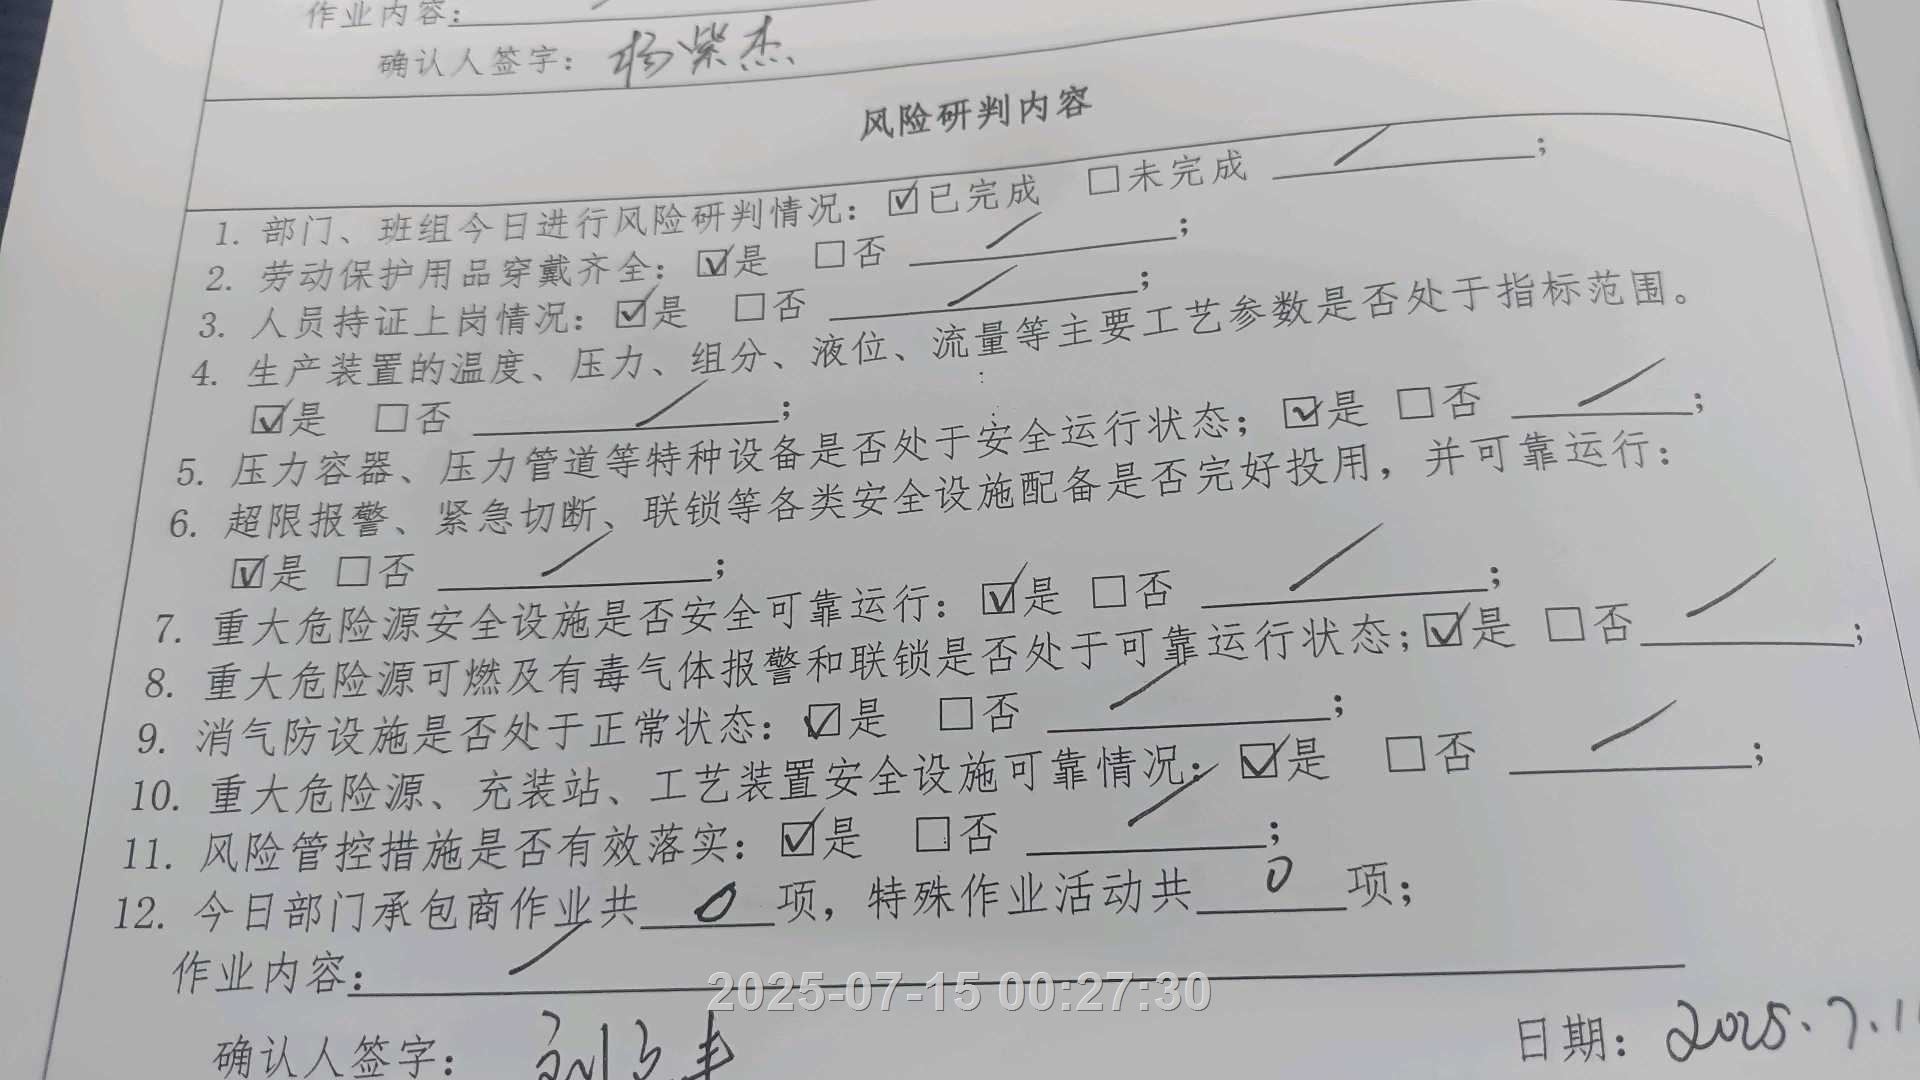 作业内容：
确认人签字：杨紫杰
风险研判内容
1. 部门、班组今日进行风险研判情况：☑已完成 ☐未完成 /；
2. 劳动保护用品穿戴齐全：☑是 ☐否 /；
3. 人员持证上岗情况：☑是 ☐否 /；
4. 生产装置的温度、压力、组分、液位、流量等主要工艺参数是否处于指标范围。
☑是 ☐否 /；
5. 压力容器、压力管道等特种设备是否处于安全运行状态；☑是 ☐否 /；
6. 超限报警、紧急切断、联锁等各类安全设施配备是否完好投用，并可靠运行：
☑是 ☐否 /；
7. 重大危险源安全设施是否安全可靠运行：☑是 ☐否 /；
8. 重大危险源可燃及有毒气体报警和联锁是否处于可靠运行状态；☑是 ☐否 /；
9. 消气防设施是否处于正常状态：☑是 ☐否 /；
10. 重大危险源、充装站、工艺装置安全设施可靠情况：☑是 ☐否 /；
11. 风险管控措施是否有效落实：☑是 ☐否 /；
12. 今日部门承包商作业共 0 项，特殊作业活动共 0 项；
作业内容： /
2025-07-15 00:27:30
确认人签字：刘 日期：2025.7.1